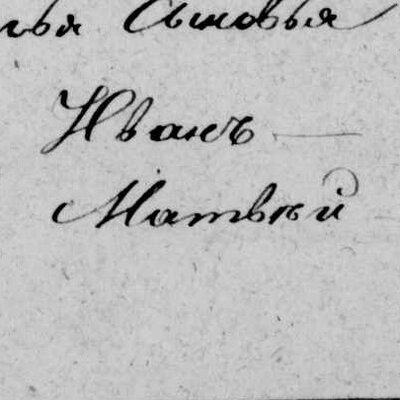 Сыновья
Иванъ
Матвѣй